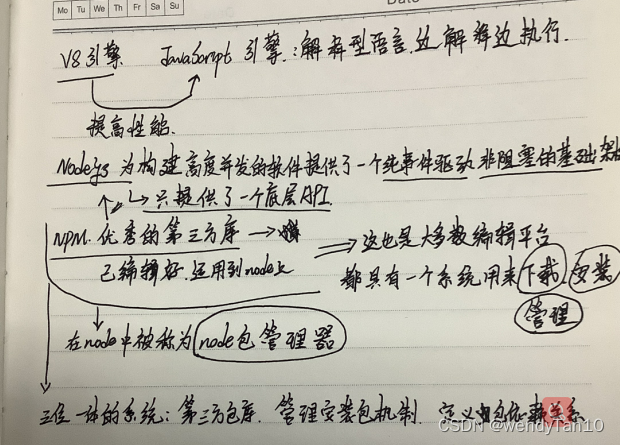 Mo Tu We Th Fr Sa Su
Date
V8引擎 JavaScript 引擎:解释型语言,边解释边执行.
提高性能.
Nodejs 为构建高度并发的软件提供了一个纯事件驱动 非阻塞的基础架构
只提供了一个底层API.
NPM.优秀的第三方库
已编辑好,运用到node上
这也是大多数编辑平台
都具有一个系统用来下载 安装
管理
在node中被称为 node包管理器
三位一体的系统:第三方包库. 管理安装包机制. 定义包依赖关系
CSDN @wendyTan10